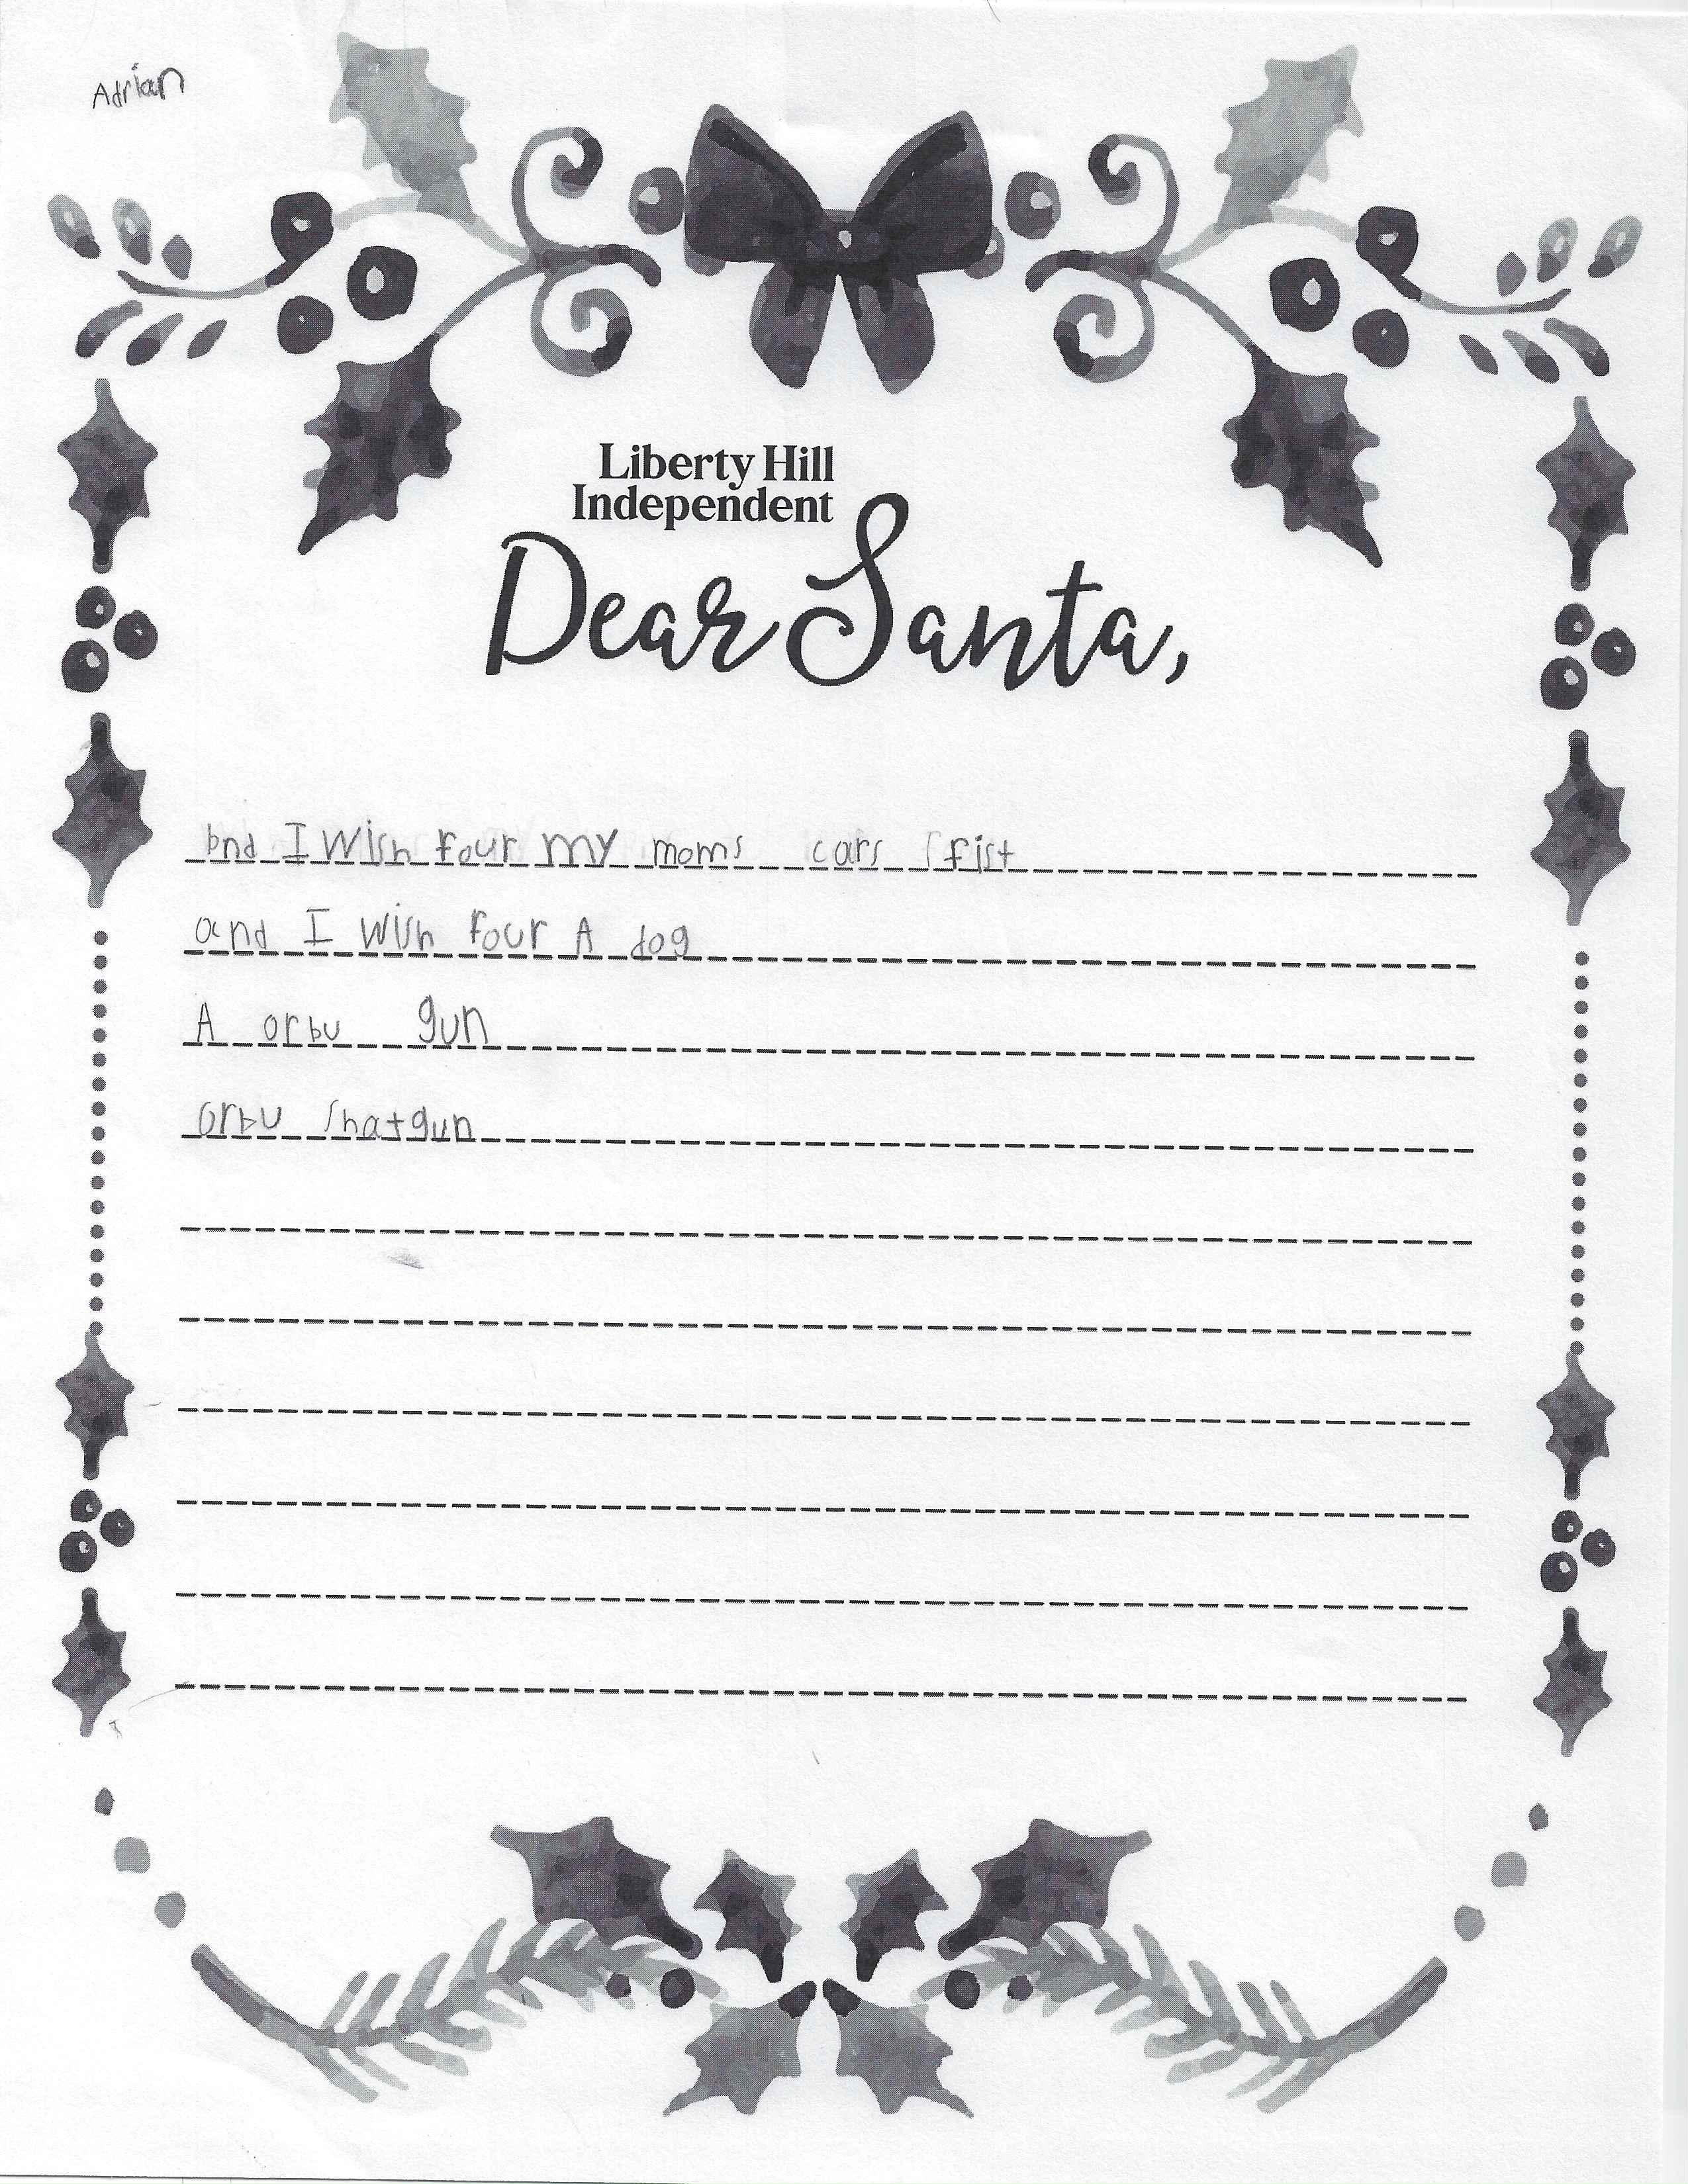 Adrian
Liberty Hill
Independent
Dear Santa,
and I Wish four my moms cars fist
and I wish four A dog
A orbu gun
orbu shatgun